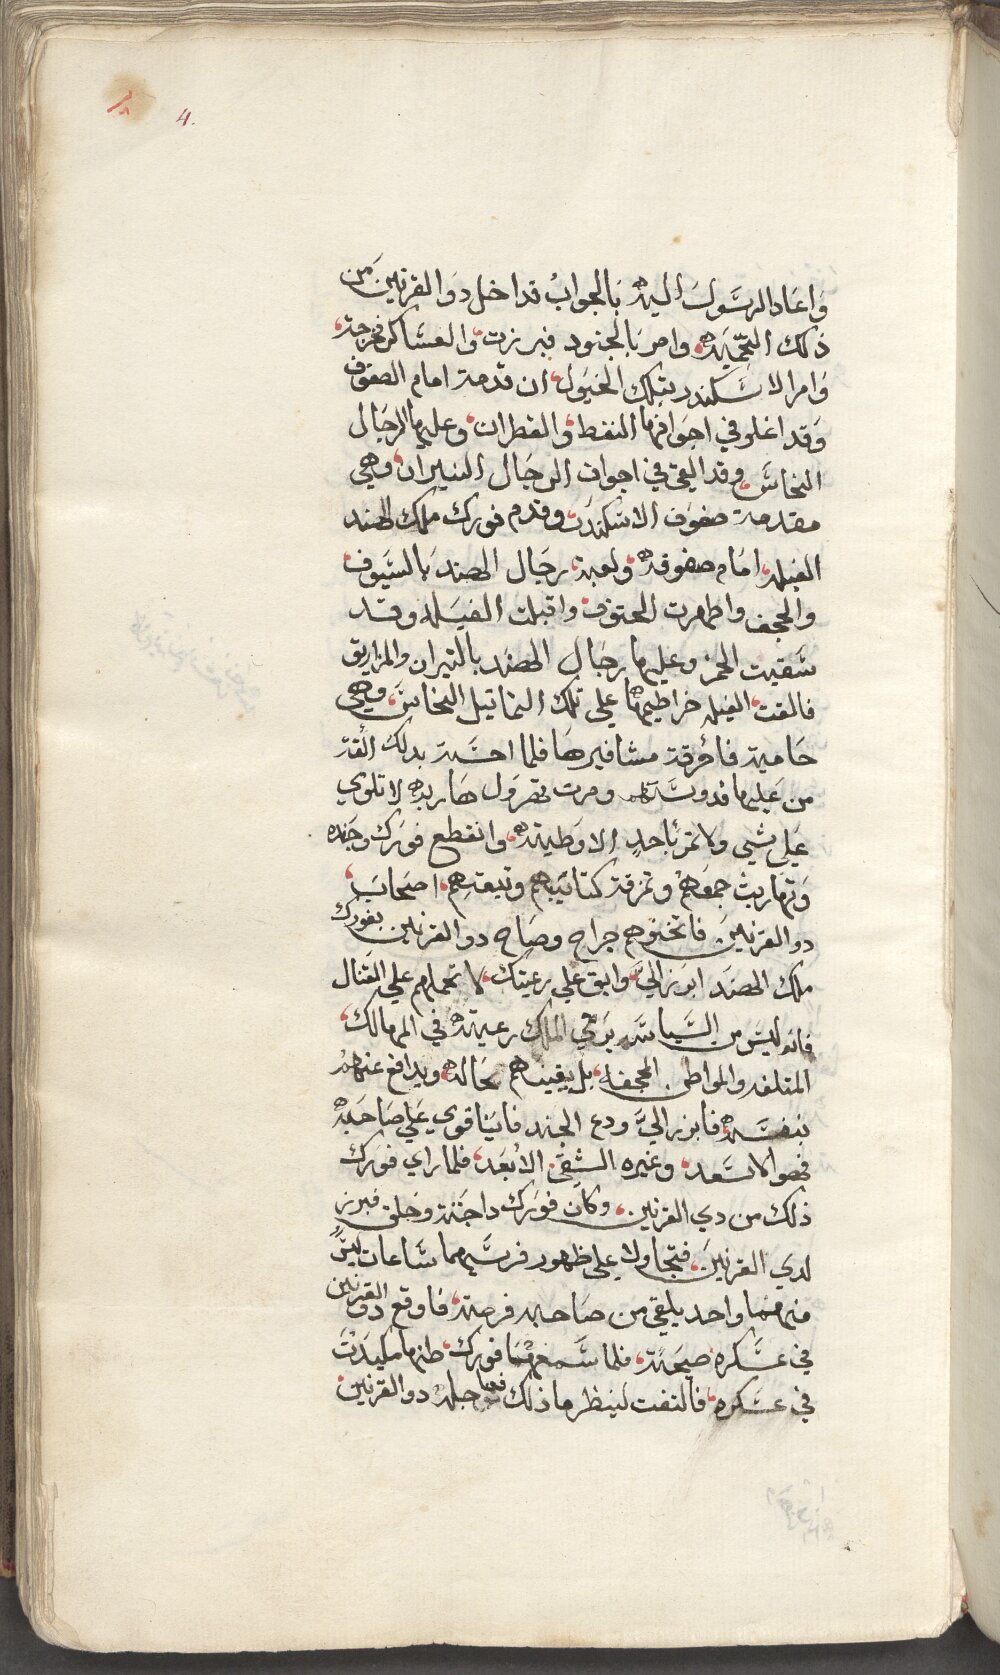 4.
واعاد الرسول اليه بالجواب قد اخل دو القرنين من
ذلك الحمية وامر بالجنود فبرزت والعساكر فخرجة
وامر الاسكندر بتلك الخيول ان قدمة امام الصفوف
وقد اغلو في اجوافها النفط والقطران وعليها الرجال
النحاس وقد القي في اجواف الرجال النيران وهي
مقدمة صفوف الاسكندر وقدم فورك ملك الهند
الفيله امام صفوفه ولعبة رجال الهند بالسيوف
والحجف واظهرت الحتوف واقبلت الفيله وقد
سقيت الخمر وعليها رجال الهند بالنيران والمزاريق
فالقت الفيله خراطيمها علي تلك التماتيل النحاس وهي
حامية فاحرقة مشافيرها فلما احسة بدلك القة
من عليها فدوسته ومرت تهرول هاربه لا تلوي
علي شي ولا تمر باحد الا وطيته وانقطع فورك وجنده
وتهاربت جمعهم وتمزقة كتائبهم وتبعتهم اصحاب
دو القرنين فاتخنوهم جراح وصاح دو القرنين بفورك
ملك الهند ابرز الي وابق علي رعيتك لا تحملهم علي القتال
فانه ليس من السياسه يرمي الملك رعيته في المهالك
المتلفه والمواطن المجحفه بل يقيهم بماله ويدافع عنهم
بنفسه فابرز الي ودع الجند فاينا قوي علي صاحبه
فهو الاسعد وغيره الشقي الابعد فلما راي فورك
ذلك من دي القرنين وكان فورك داجتة وخلق فبرز
لدي القرنين فتجاولا علي ظهور فرسيهما ساعات ليس
منهما واحد يلقي من صاحبه فرصة فاوقع دو القرنين
في عسكره صيحة فلما سمعها فورك ظنها مكيدت
في عسكره فالتفت لينظر ما ذلك فعاجله دو القرنين